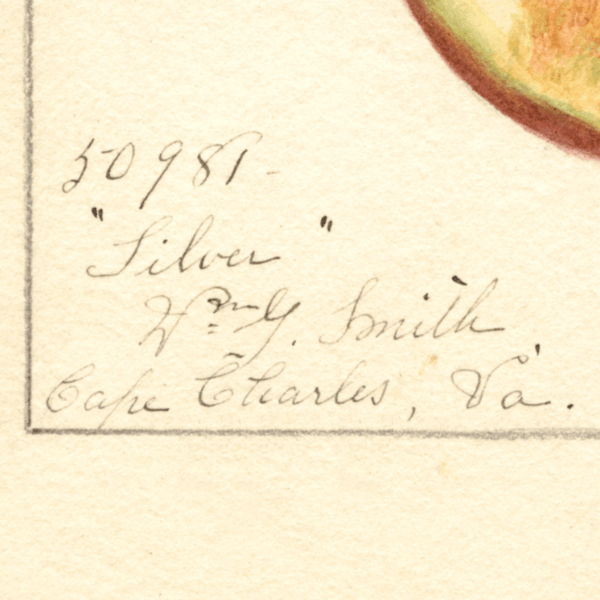 50981-
"Silver"
Wm G. Smith,
Cape Charles, Va.